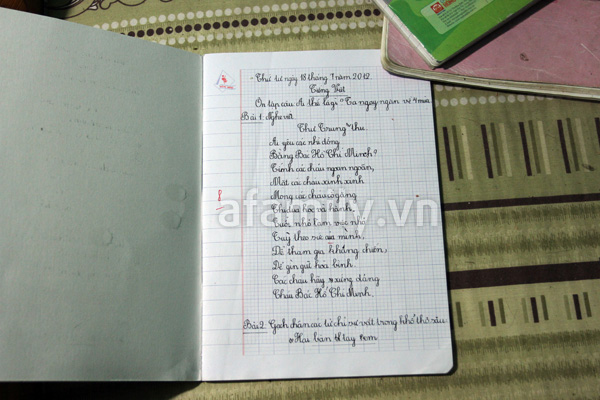 - Thứ tư ngày 18 tháng 7 năm 2012
Tiếng Việt
Ôn tập câu Ai thế
Bài 1: Nghe viết
Thư Trung thu.
Ai yêu các nhi đồng
Bằng Bác Hồ Chí Minh?
Tính các cháu ngoan ngoãn,
Mặt các cháu xinh xinh
Mong các cháu cố gắng
Thi đua học và hành.
Tuổi nhỏ làm việc nhỏ
Tuỳ theo sức của mình,
Để tham gia kháng chiến,
Để gìn giữ hòa bình.
Các cháu hãy xứng đáng
Cháu Bác Hồ Chí Minh.
8
afamily.vn
Bài 2: Gạch chân các từ chỉ sự vật trong khổ thơ sau
Hai bàn tay em